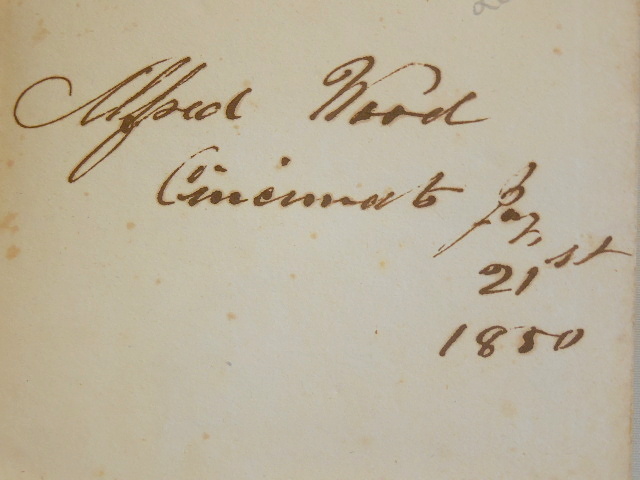 Alfred Wood
Cincinnati Jay,
21st
1850